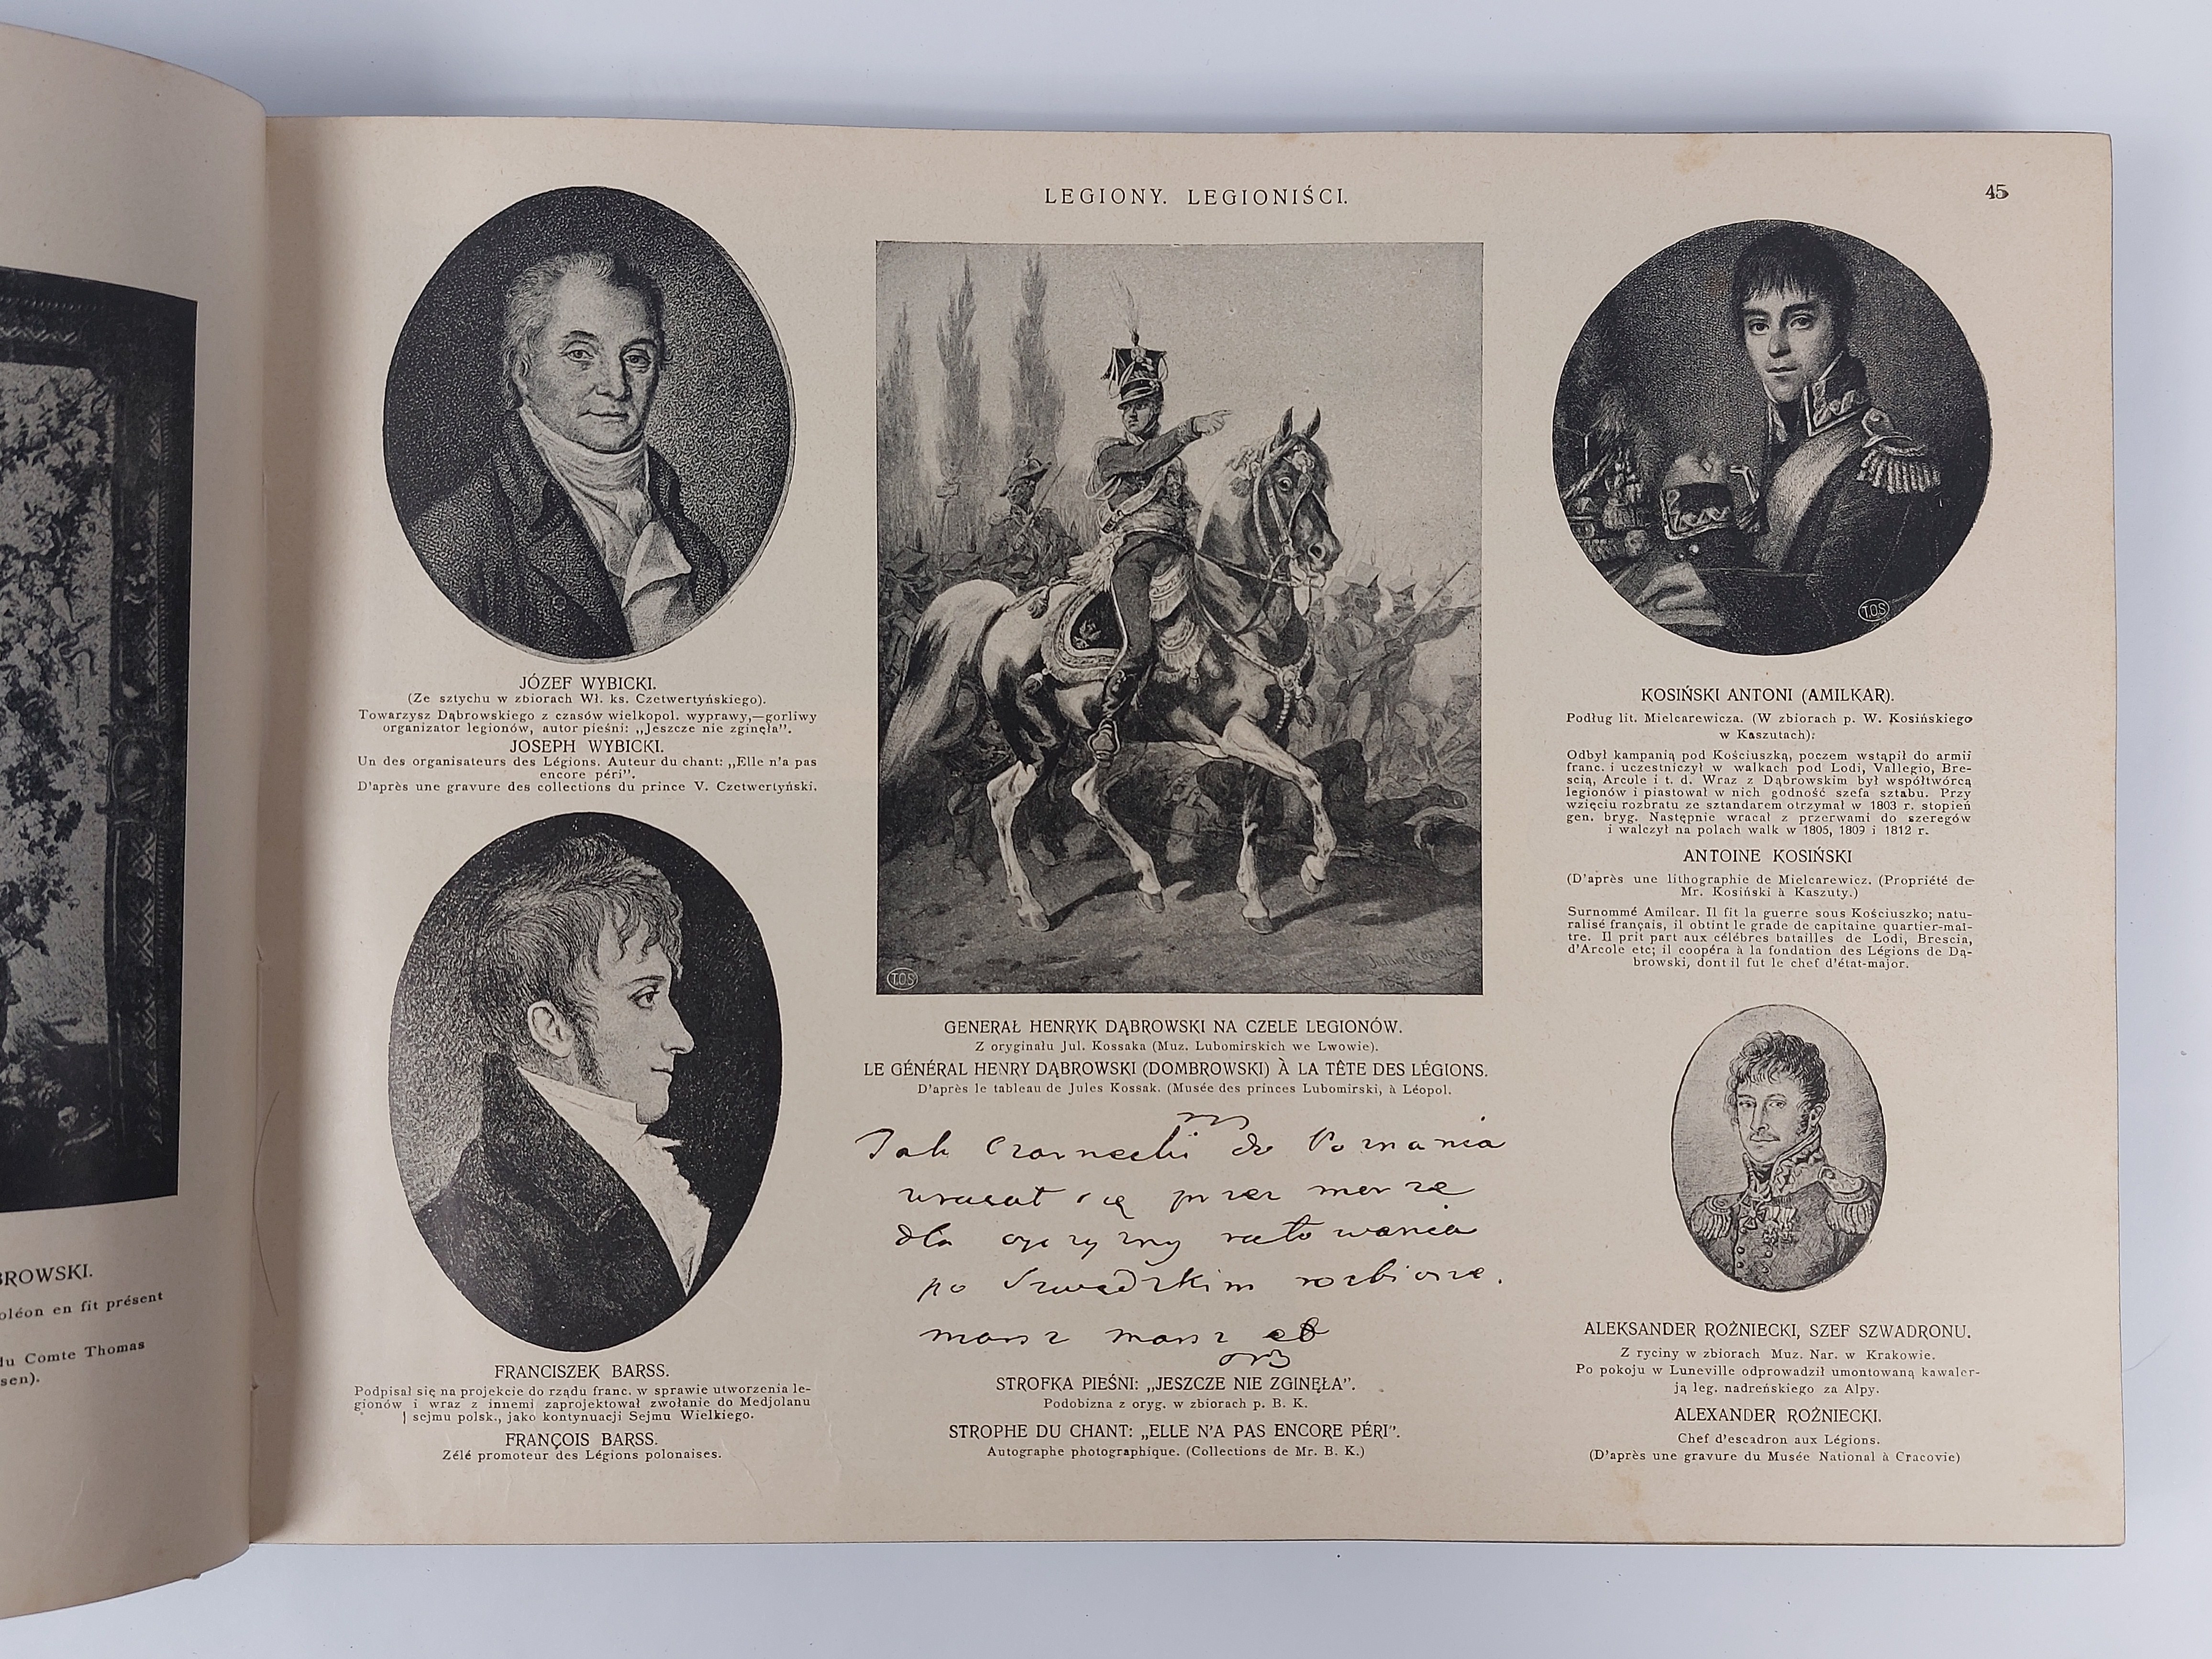 BROWSKI.
oléon en fit présent
du Comte Thomas
sen).
LEGIONY. LEGIONIŚCI.
45
JÓZEF WYBICKI.
(Ze sztychu w zbiorach Wł. ks. Czetwertyńskiego).
Towarzysz Dąbrowskiego z czasów wielkopol. wyprawy,—gorliwy
organizator legionów, autor pieśni: „Jeszcze nie zginęła”.
JOSEPH WYBICKI.
Un des organisateurs des Légions. Auteur du chant: „Elle n'a pas
encore péri”.
D'après une gravure des collections du prince V. Czetwertyński.
FRANCISZEK BARSS.
Podpisał się na projekcie do rządu franc. w sprawie utworzenia le-
gionów i wraz z innemi zaprojektował zwołanie do Medjolanu
sejmu polsk., jako kontynuacji Sejmu Wielkiego.
FRANÇOIS BARSS.
Zélé promoteur des Légions polonaises.
T.O.S
GENERAŁ HENRYK DĄBROWSKI NA CZELE LEGIONÓW.
Z oryginału Jul. Kossaka (Muz. Lubomirskich we Lwowie).
LE GÉNÉRAL HENRY DĄBROWSKI (DOMBROWSKI) À LA TÊTE DES LÉGIONS.
D'après le tableau de Jules Kossak. (Musée des princes Lubomirski, à Léopol.
Jak Czarnecki do Poznania
wracał się przez morze
dla ojczyzny ratowania
po Szwedzkim rozbiorze.
marsz marsz
STROFKA PIEŚNI: „JESZCZE NIE ZGINĘŁA”.
Podobizna z oryg. w zbiorach p. B. K.
STROPHE DU CHANT: „ELLE N'A PAS ENCORE PÉRI”.
Autographe photographique. (Collections de Mr. B. K.)
T.O.S
KOSIŃSKI ANTONI (AMILKAR).
Podług lit. Mielcarewicza. (W zbiorach p. W. Kosińskiego
w Kaszutach):
Odbył kampanią pod Kościuszką, poczem wstąpił do armii
franc. i uczestniczył w walkach pod Lodi, Vallegio, Bre-
scią, Arcole i t. d. Wraz z Dąbrowskim był współtwórcą
legionów i piastował w nich godność szefa sztabu. Przy
wzięciu rozbratu ze sztandarem otrzymał w 1803 r. stopień
gen. bryg. Następnie wracał z przerwami do szeregów
i walczył na polach walk w 1805, 1809 i 1812 r.
ANTOINE KOSIŃSKI
(D'après une lithographie de Mielcarewicz. (Propriété de
Mr. Kosiński à Kaszuty.)
Surnommé Amilcar. Il fit la guerre sous Kościuszko; natu-
ralisé français, il obtint le grade de capitaine quartier-maî-
tre. Il prit part aux célébres batailles de Lodi, Brescia,
d'Arcole etc; il coopéra à la fondation des Légions de Dą-
browski, dont il fut le chef d'état-major.
ALEKSANDER ROŻNIECKI, SZEF SZWADRONU.
Z ryciny w zbiorach Muz. Nar. w Krakowie.
Po pokoju w Luneville odprowadził umontowaną kawaler-
ją leg. nadreńskiego za Alpy.
ALEXANDER ROŻNIECKI.
Chef d'escadron aux Légions.
(D'après une gravure du Musée National à Cracovie)